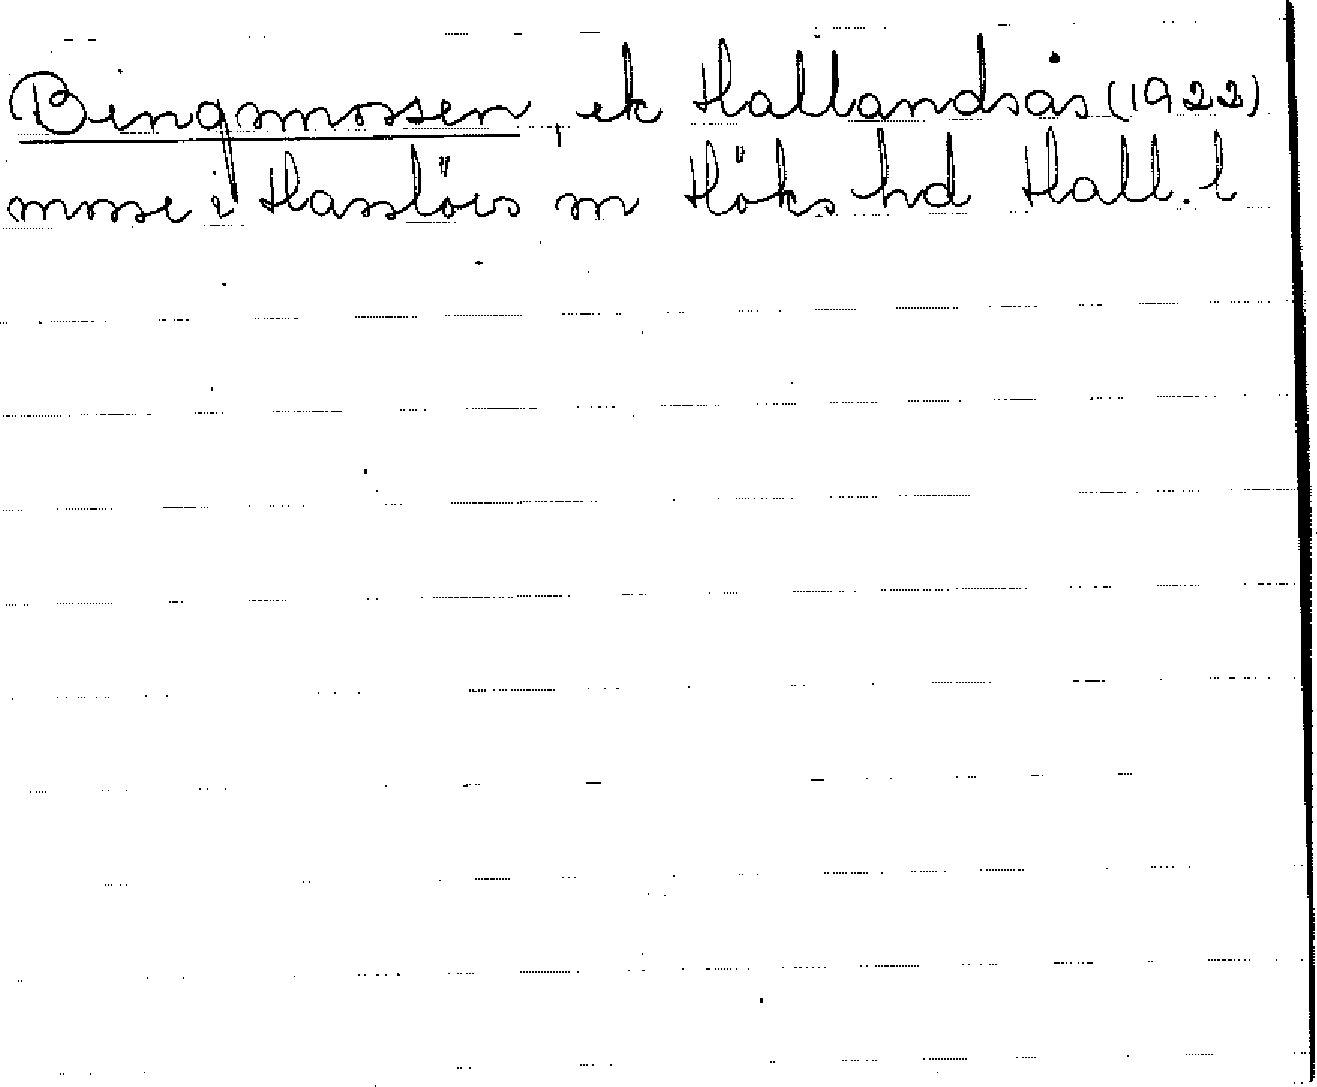 Bingsmossen, ek Hallandsås (1922)
mosse i Hasslövs sn Höks hd Hall. l